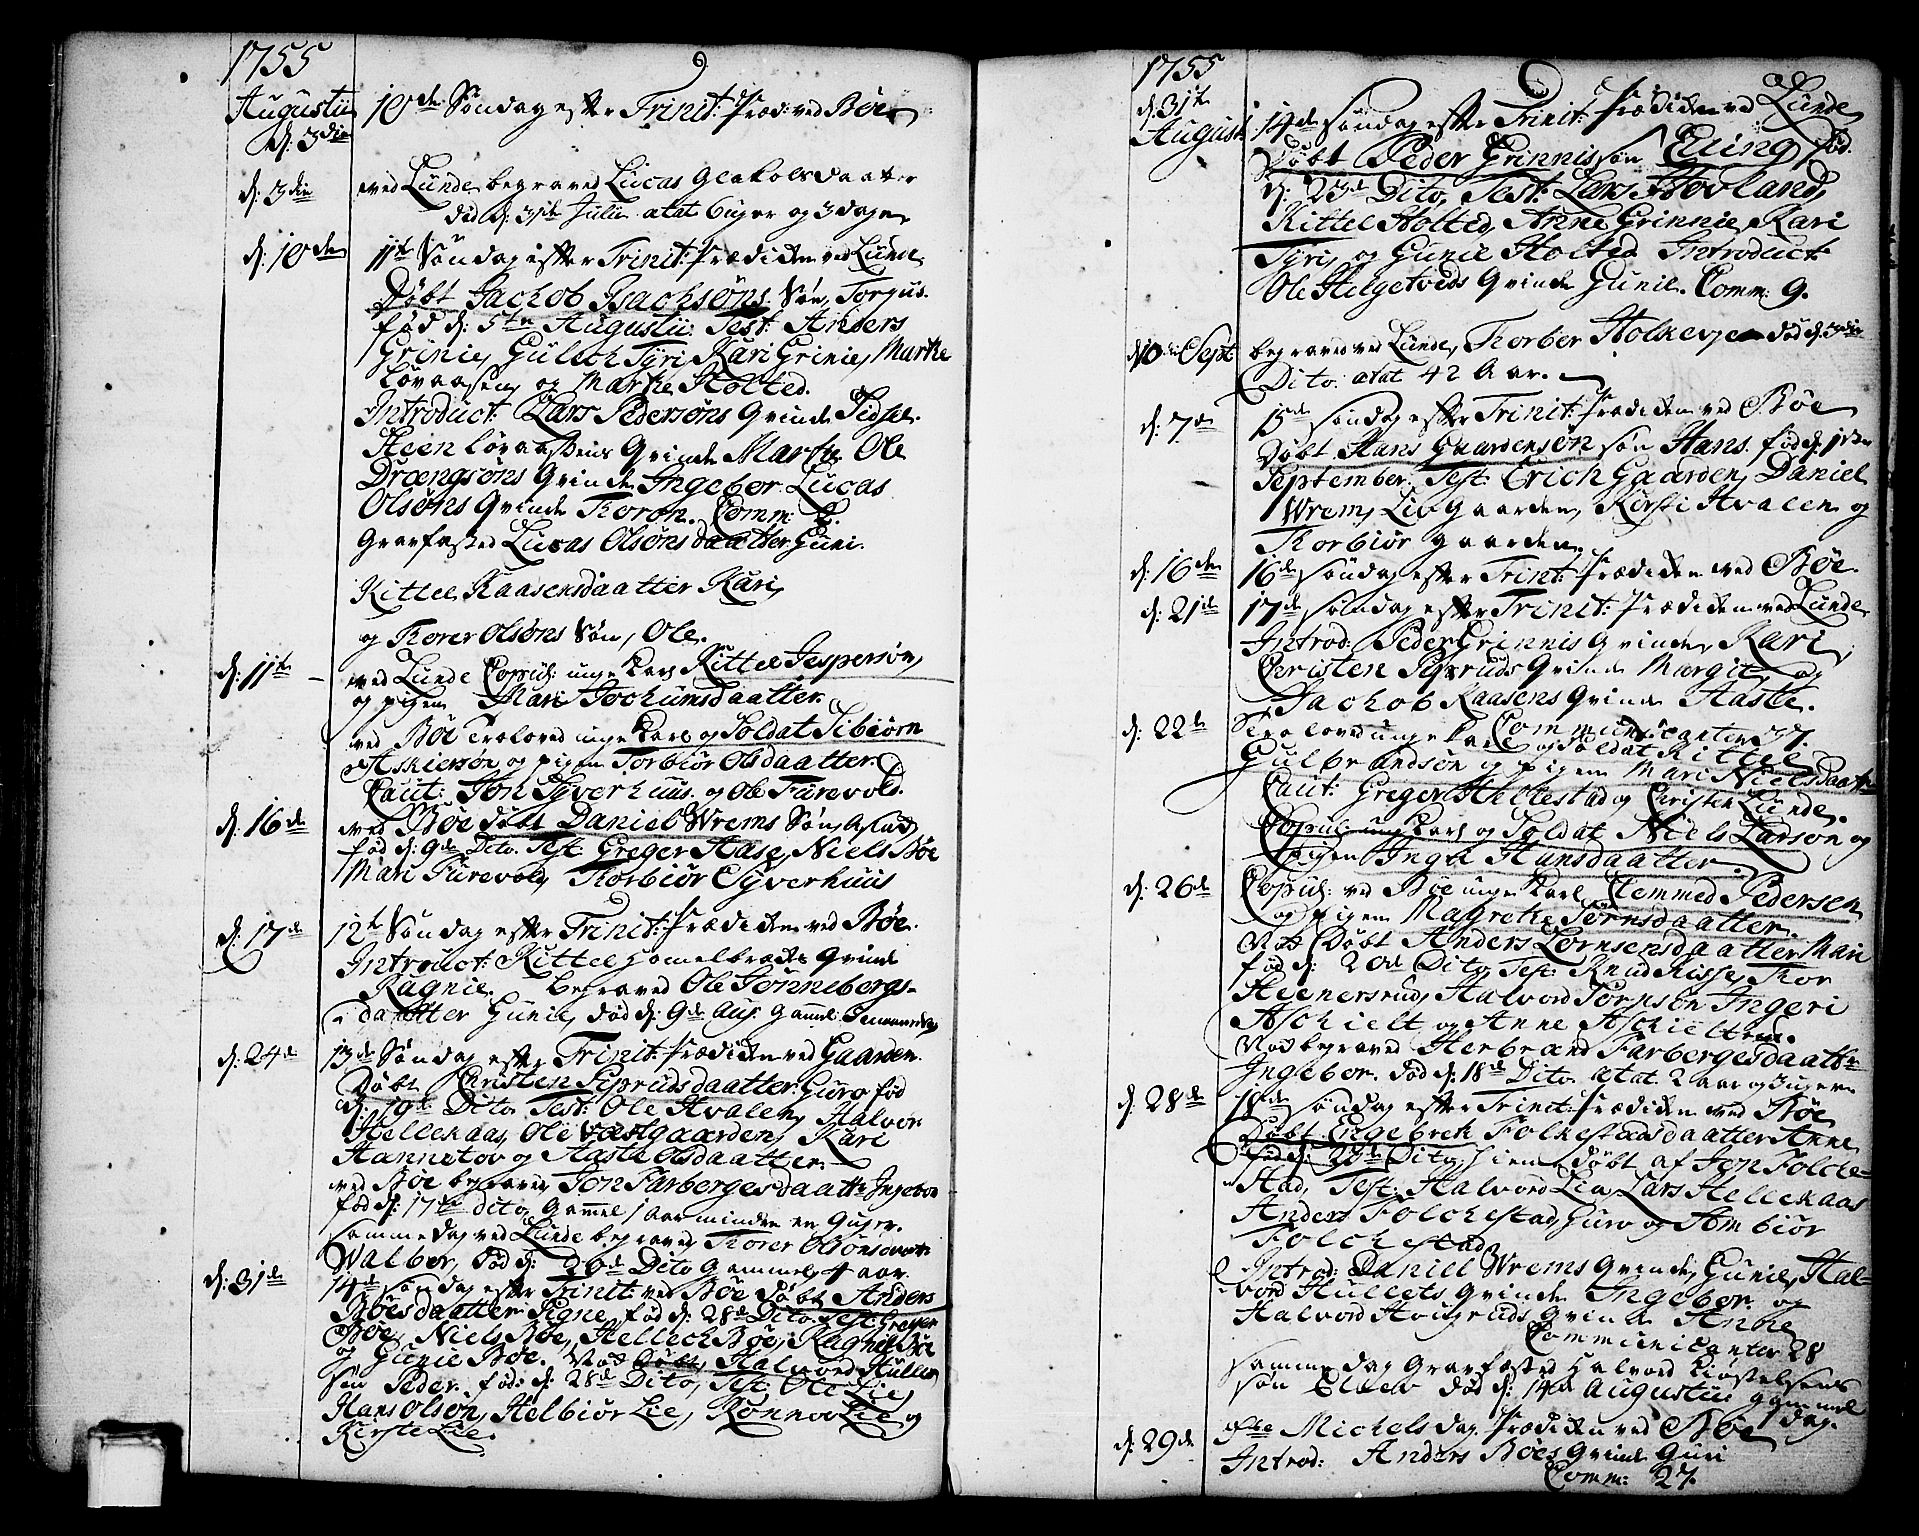 1755
Augustii d: 3die 10de Søndag efter Trinit: Præd: ved Bøe
d: 3die ved Lunde begraved Lucas
død d: 31te Julii ætat 6 uger og 3 dage
d: 10de 11te Søndag efter Trinit: Prædiken ved Lunde
Døbt Jachob Isachsøns Søn, Torgus.
fød d: 5te Augustii: Test: Anders
Grinie, Gulich Tyri, Kari Grinie, Marthe
Løvaasen og Marthe Holted.
Introduct: Lars Pedersøns Qvinde Sidsel
Steen Løvaasens Qvinde Marthe Ole
Drængsøns Qvinde Ingebor Lucas
Olsøns Qvinde Thoron. Comm: 8.
Gravfæsted Lucas Olsøns daatter Guni.
Kittel Kaasens daatter Kari
og Thorer Olsøns Søn, Ole.
d: 11te ved Lunde Copul: unge Karl Kittel Jespersøn,
og pigen Mari Jochumsdaatter.
ved Bøe Troloved unge Karl og Soldat Sibiørn
Askiersøn og pigen Torbiør Olsdaatter.
Caut: Jon Syverhuus og Ole Furevold.
d: 16de ved Bøe døbt Daniel Wrems Søn Aslad
fød d: 9de Dito. Test: Greger Haase, Niels Bøe
Mari Furevold, Thorbiør Syverhuus
d: 17de 12te Søndag efter Trinit: Prædiken ved Bøe.
Introduct: Kittel Homelbrechs Qvinde
Ragnie. begraved Ole Tønnebergs
daatter Gunil, død d: 9de Aug: gammel
d: 24de 13de Søndag efter Trinit: Prædiken ved Gaarden.
Døbt Christen Sipruds daatter: Guro fød
d: 19de Dito Test: Ole Hvalen, Halvor
Hellekaas, Ole Væstgaarden, Kari
Hannetov og Aaste Olsdaatter.
ved Bøe begraved Jon Farberges daatter Ingebor
fød d: 17de dito, gammel 1 aar minden en 6 uger.
samme dag ved Lunde begraved Thorer Olsøns daatter
Walbor, død d: 20de Dito gammel 4 aar.
d: 31de 14de Søndag efter Trinit: ved Bøe Døbt Anders
Bøes daatter Signe, fød d: 28de Dito. Test: Greger
Bøe, Niels Bøe, Hellech Bøe, Ragnil Bøe
og Gunil Bøe. Nok Døbt Halvord Hullets
søn Peder. fød: d: 28de Dito, Test: Ole Lie,
Hans Olsøn, Helbiør Lie, Rønnov Lie og
Kirste Lie.
1755
d: 31te August 14de Søndag efter Trinit: Prædiken ved Lunde
Døbt Peder Grinnis søn Eling, fød
d: 23de Dito, Test: Lars Hovland,
Kittel Holted, Anne Grinnie, Kari
Tyri, og Gunil Holted Introduct:
Ole Helgetveds Qvinde Gunil. Comm: 9.
Sept begraved ved Lunde, Thorber Holkevje død d: 3die
Dito. ætat 42 Aar.
d: 7de 15de Søndag efter Trinit: Prædiken ved Bøe
Døbt Hans Gaardensøn søn Hans. fød d: 1ste
September. Test: Erich Gaarden, Daniel
Wrem, Liv Gaarden, Kirsti Hvalen og
Thorbiør gaarden,
d: 16de 16de Søndag efter Trinit: Prædiken ved Bøe.
d: 21de 17de Søndag efter Trinit: Prædiken ved Lunde
Introd: Peder Grinnis Qvinde, Kari,
Christen Sipruds Qvinde Margit, og
Jachob Kaasens Qvinde Aaste.
Communicanter 37.
d: 22de Troloved unge Karl og Soldat Kittel
Gulbrandsøn og pigen Mari Nielsdaatter
Caut: Greger Aholtestad og Christen Lunde.
Copul: unge Karl og Soldat Niels Larsøn og
pigen Inge Hansdaatter.
d: 26de Copul: ved Bøe unge Karl Clemmed Pedersen
og pigen Magrethe Jørnsdaatter.
Nok Døbt Anders Lørnsens daatter Mari
fød d: 20de Dito, Test: Knud Risse, Thor
Steenersrud, Halvord Torpsøn Ingeri
Aschielt og Anne Aschieltred.
Nok begraved Herbrand Farberges daatter
Ingebor. død d: 18de Dito ætat. 2 aar og 3 ugers
d: 28de 18de Søndag efter Trinit: Prædiken ved Bøe
Døbt Engebreth Folkestads daatter Anne
fød d: 20de Dito, hiemdøbt af Jon Folche-
stad, Test: Halvord Lia, Lars Hellekaas
Anders Folchestad, Guro og Armbiør
Folchestad
Introd: Daniel Wrems Qvinde, Gunil, Hal-
vord Hullets Qvinde Ingebor. og
Halvord Hougruds Qvinde Anne
Communicanter 28
samme dag Gravfæsted Halvord Kiøstelsens
søn Ellev død d: 14de Augustii: gammel
dag.
d: 29de Michels dag Prædiken ved Bøe
Introd: Anders Bøes Qvinde Guri
Comm: 27.